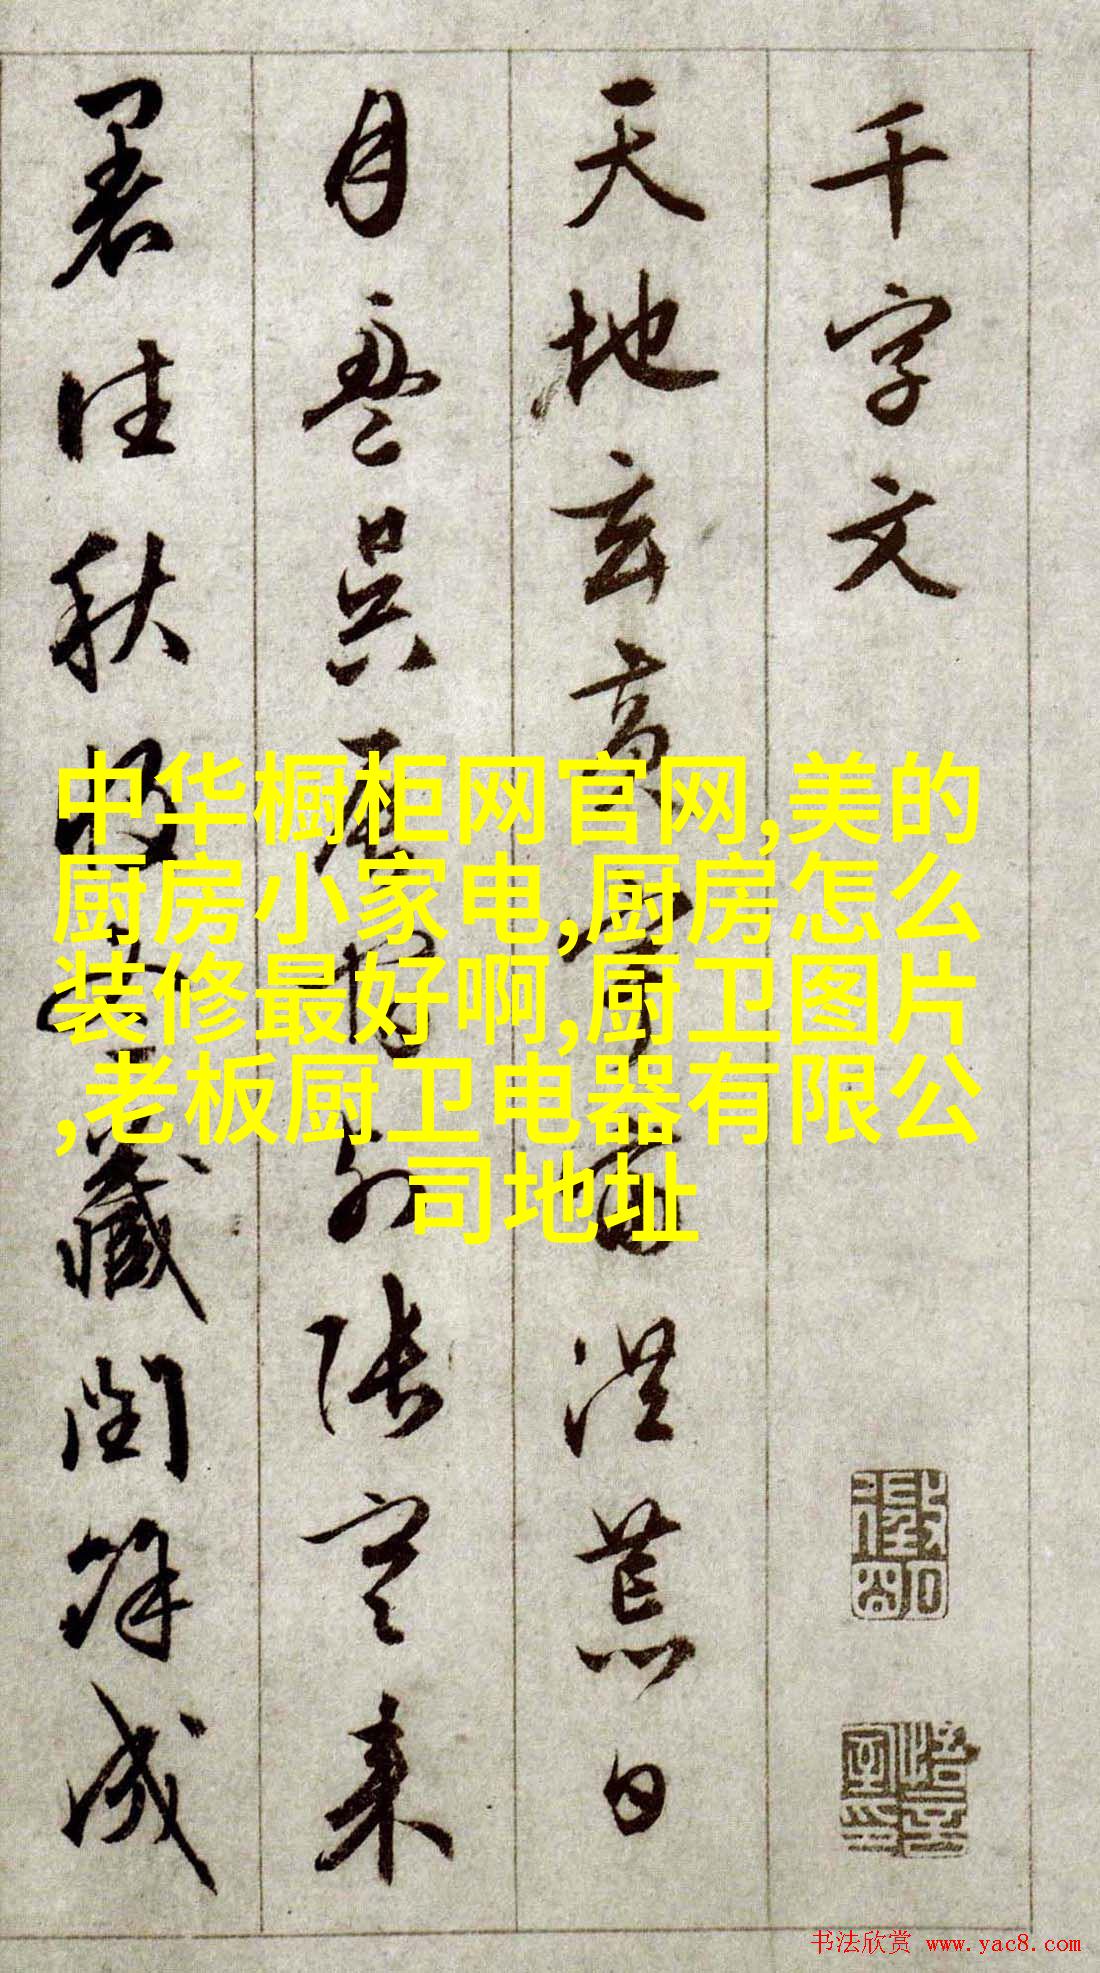 千字文
天地玄黄宇宙洪荒日
月盈昃辰宿列张寒来
暑往秋收冬藏闰馀成
中华橱柜网官网,美的
厨房小家电,厨房怎么
装修最好啊,厨卫图片
,老板厨卫电器有限公
司地址
书法欣赏 www.yac8.com